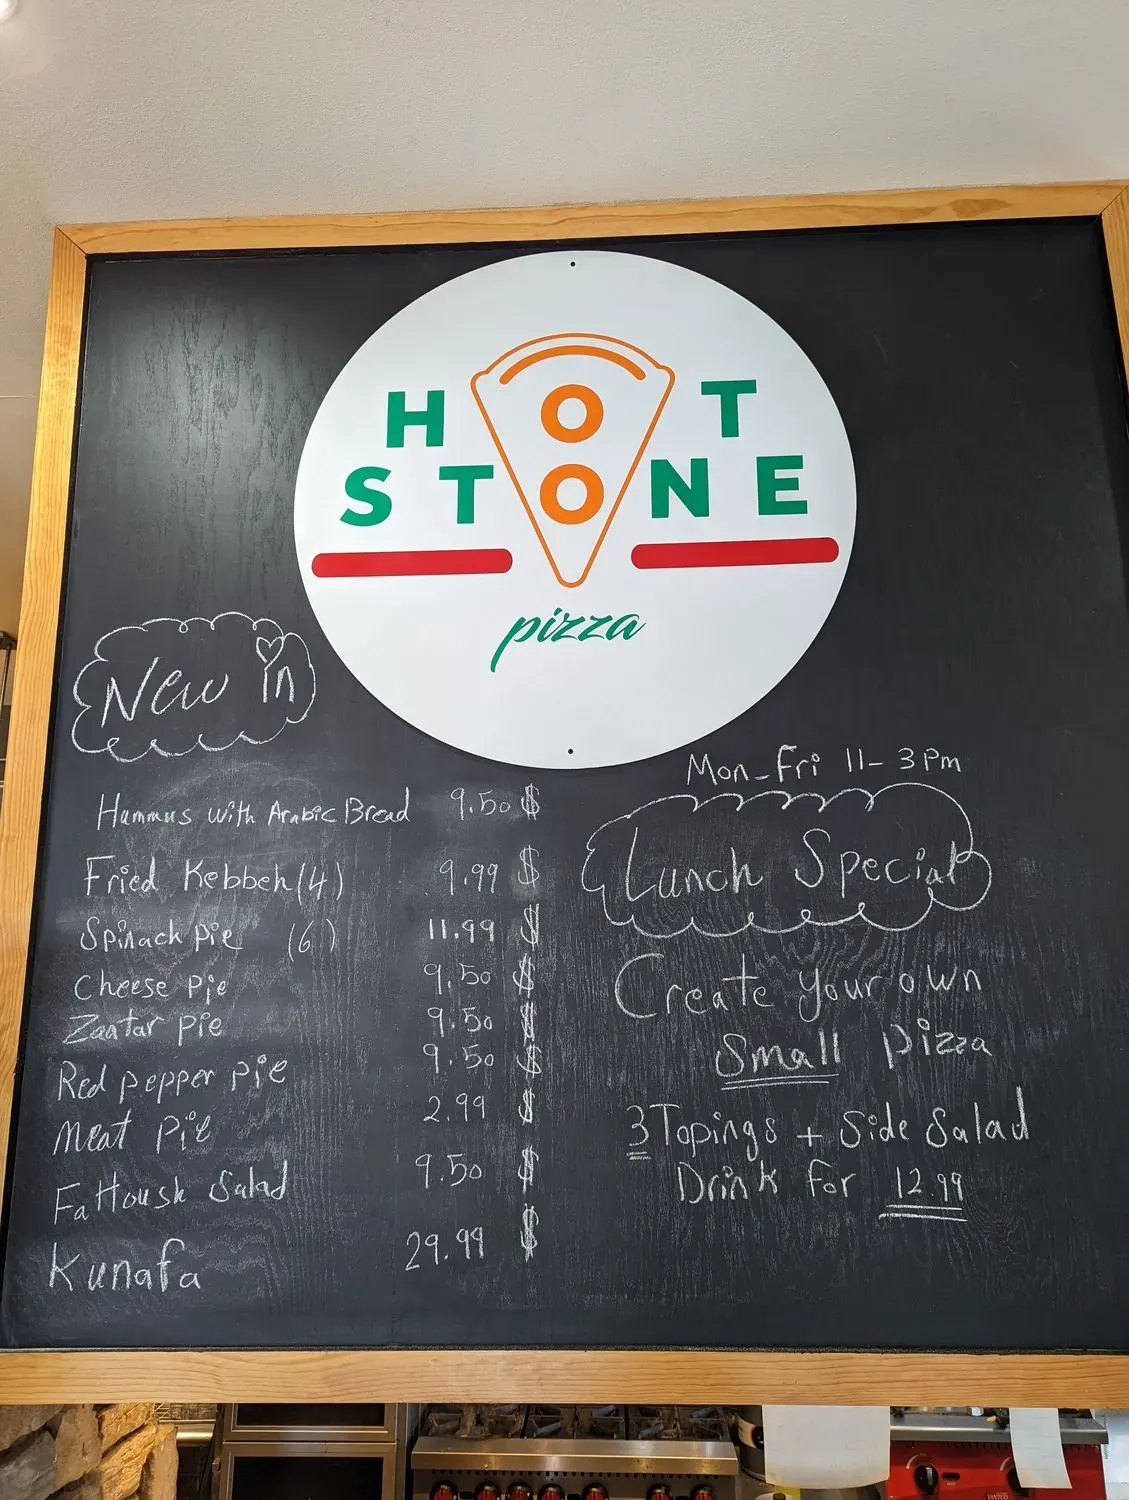 HOT
STONE
pizza
New in
Hummus with Arabic Bread 9.50 $
Fried Kebbeh (4) 9.99 $
Spinach pie (6) 11.99 $
Cheese pie 9.50 $
Zaatar pie 9.50 $
Red pepper pie 9.50 $
Meat pie 2.99 $
Fattoush Salad 9.50 $
Kunafa 29.99 $
Mon-Fri 11-3pm
Lunch Special
Create your own
Small Pizza
3 Topings + Side Salad
Drink for 12.99